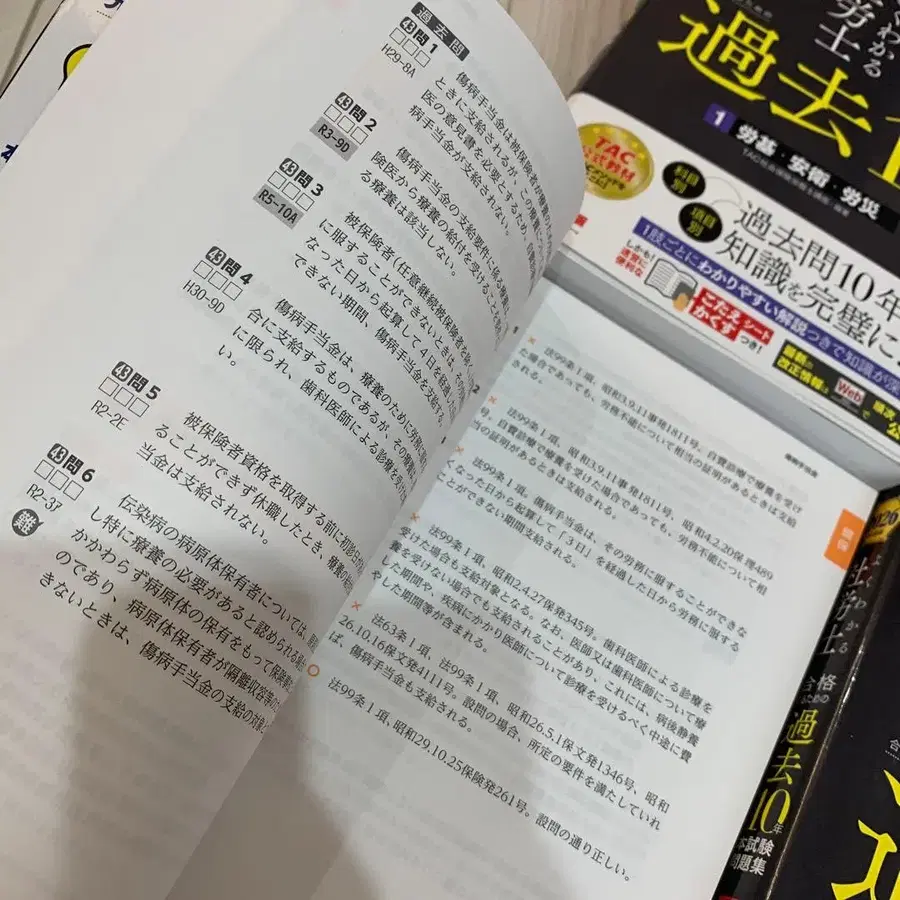 過去問
43 問1
H29-8A
傷病手当金は被保険者が療養の
ときに支給されるが、この療養
医の意見書を必要とするため、自費診
病手当金が支給されない。
43 問2
R3-9D
傷病手当金の支給要件に係る療養
険医から療養の給付を受けること
る療養は該当しない。
43 問3
R5-10A
被保険者(任意継続被保険者を除く
に服することができないときは、その労務
なった日から起算して4日を経過した日
できない期間、傷病手当金を支給する。
43 問4
H30-9D
傷病手当金は、療養のために労務に服
合に支給するものであるが、その療養は
に限られ、歯科医師による診療を受け
い。
43 問5
R2-2E
被保険者資格を取得する前に初診日が
ることができず休職したとき、療養の給
当金は支給されない。
43 問6
R2-3ア
難
伝染病の病原体保有者については、
し特に療養の必要があると認められる場合
かかわらず病原体の保有をもって保険事
のであり、病原体保有者が隔離収容等の
ないときは、傷病手当金の支給の対象
傷病手当金
健保
× 法99条1項、昭和3.9.11事発1811号。自費診療で療養を受け
た場合であっても、労務不能について相当の証明があるときは支給
される。
× 法99条1項、昭和3.9.11事発1811号、昭和4.2.20保理489
号。自費診療で療養を受けた場合であっても、労務不能について相
当の証明があるときは支給される。
× 法99条1項。傷病手当金は、その労務に服することができな
くなった日から起算して「3日」を経過した日から労務に服する
ことができない期間支給される。
× 法99条1項、昭和2.4.27保発345号。歯科医師による診療を
受けた場合も支給対象となる。なお、医師又は歯科医師について療
養を受けない場合でも支給されることがあり、これには、病後静養
した期間や、疾病にかかり医師について診療を受けるべく中途に費
やした期間等が含まれる。
× 法63条1項、法99条1項、昭和26.5.1保文発1346号、昭和
26.10.16保文発4111号。設問の場合、所定の要件を満たしていれ
ば、傷病手当金も支給される。
○ 法99条1項、昭和29.10.25保険発261号。設問の通り正しい。
わかる
労士
過去
1 労基・安衛・労災
TAC
公式教材
科目別
項目別
過去問10年
知識を完璧に
1肢ごとにわかりやすい解説つきで知識が深
しかも!
便利な
こたえかくすシート
つき!
最新の
改正情報は
Webで
よくわかる
社労士
合格
ための
過去10年
本試験
問題集